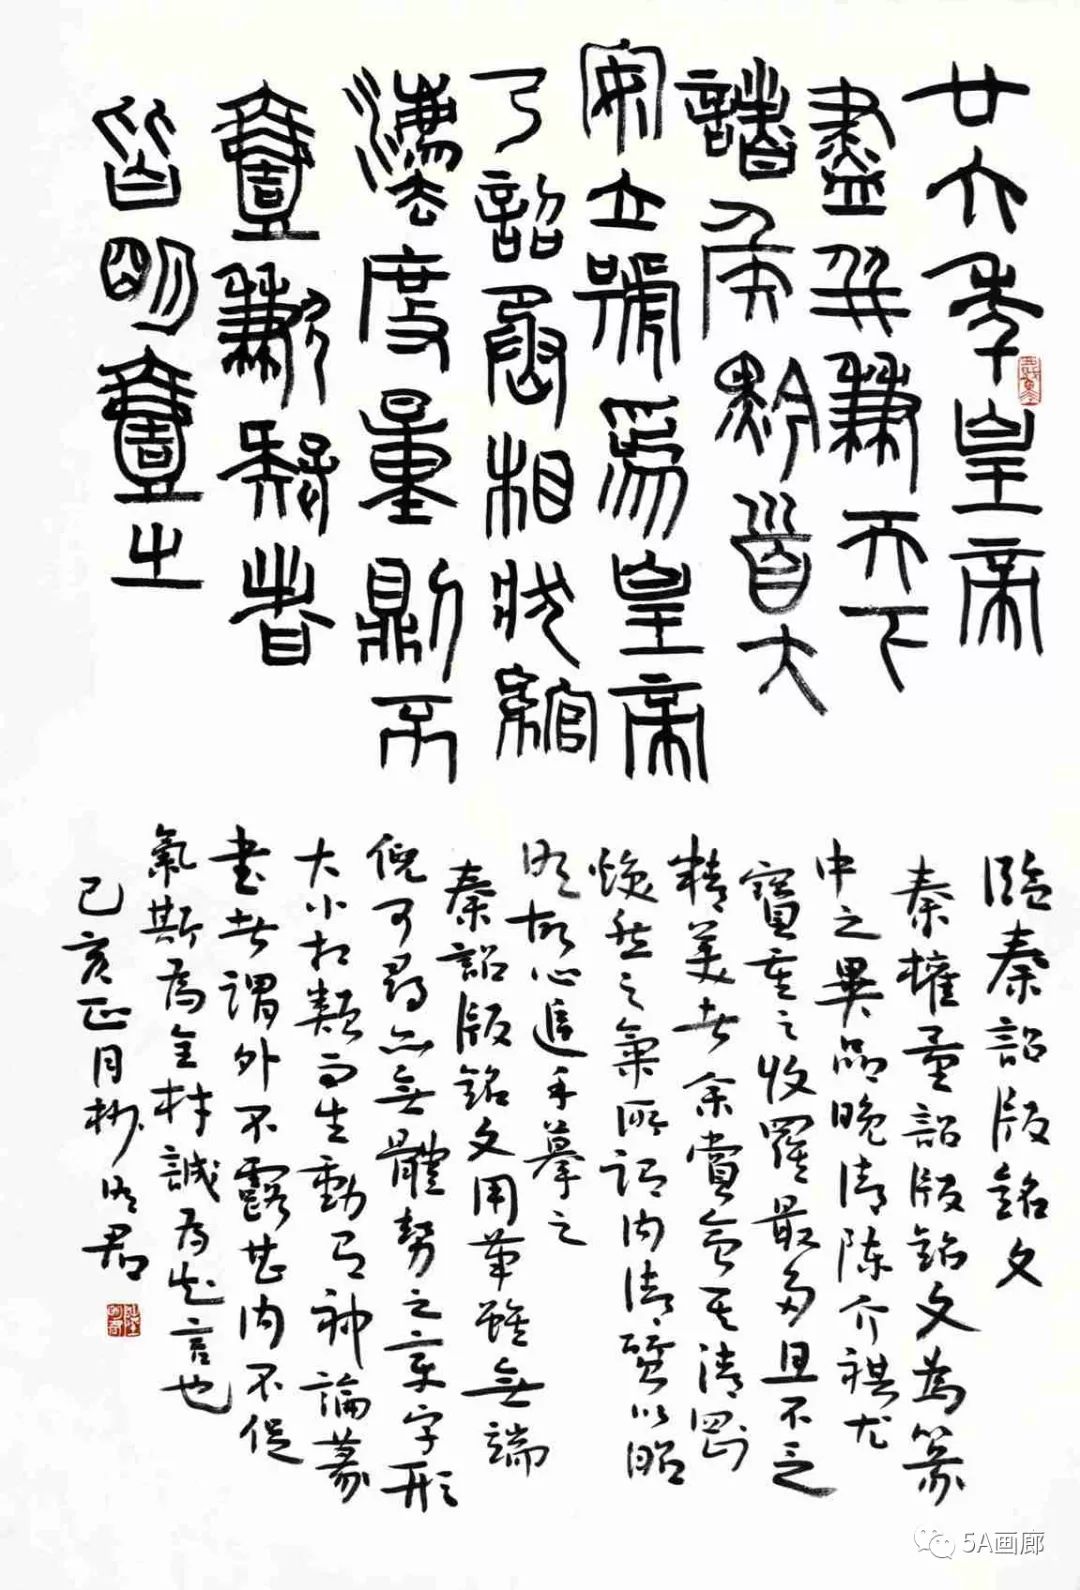 廿六年皇帝
盡并兼天下
諸侯黔首大
安立號爲皇帝
乃詔丞相狀綰
灋度量則不
壹歉疑者
皆明壹之
臨秦詔版銘文
秦權量詔版銘文為篆
中之異品晚清陳介祺尤
寶重之收羅最多且不乏
精美者余賞其清剛
煥然之氣所謂內清質以昭
明故心追手摹之
秦詔版銘文用筆雖無端
倪可尋亦無體勢之束字形
大小相類而生動有神論篆
書者謂外不露其內不促
氣斯為全材誠為知言也
己亥正月杪明君
陸明君
5A画廊